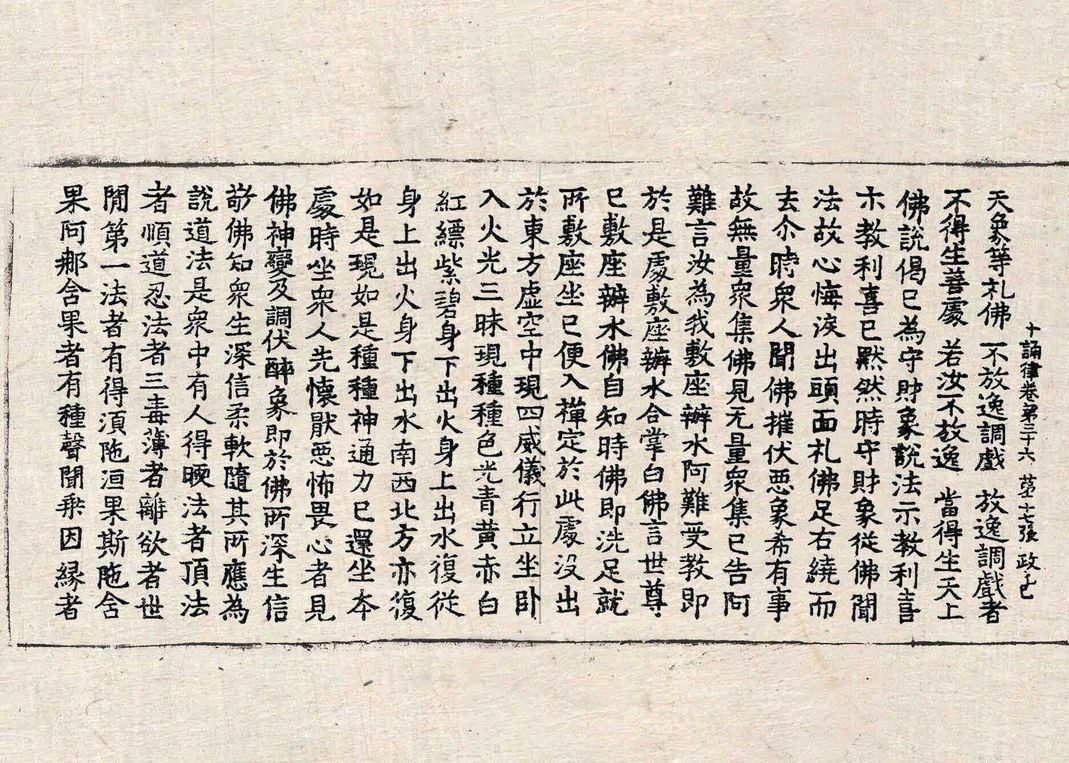 十誦律卷第三十六 第十張
天象等礼佛 不放逸調戲 放逸調戲者
不得生善處 若汝不放逸 當得生天上
佛說偈已為守財象說法示教利喜
示教利喜已黙然時守財象從佛聞
法故心悔淚出頭面礼佛足右繞而
去尒時衆人聞佛摧伏悪象希有事
故無量衆集佛見无量衆集已告阿
難言汝為我敷座辦水阿難受教即
於是處敷座辦水合掌白佛言世尊
已敷座辦水佛自知時佛即洗足就
所敷座坐已便入禪定於此處没出
於東方虚空中現四威儀行立坐卧
入火光三昧現種種色光青黄赤白
紅縹紫碧身下出火身上出水復從
身上出火身下出水南西北方亦復
如是現如是種種神通力已還坐本
處時坐衆人先懷猒悪怖畏心者見
佛神變及調伏醉象即於佛所深生信
敬佛知衆生深信柔軟隨其所應為
說道法是衆中有人得暖法者頂法
者順道忍法者三毒薄者離欲者世
閒第一法者有得湏陁洹果斯陁含
果阿那含果者有種聲聞乘因縁者